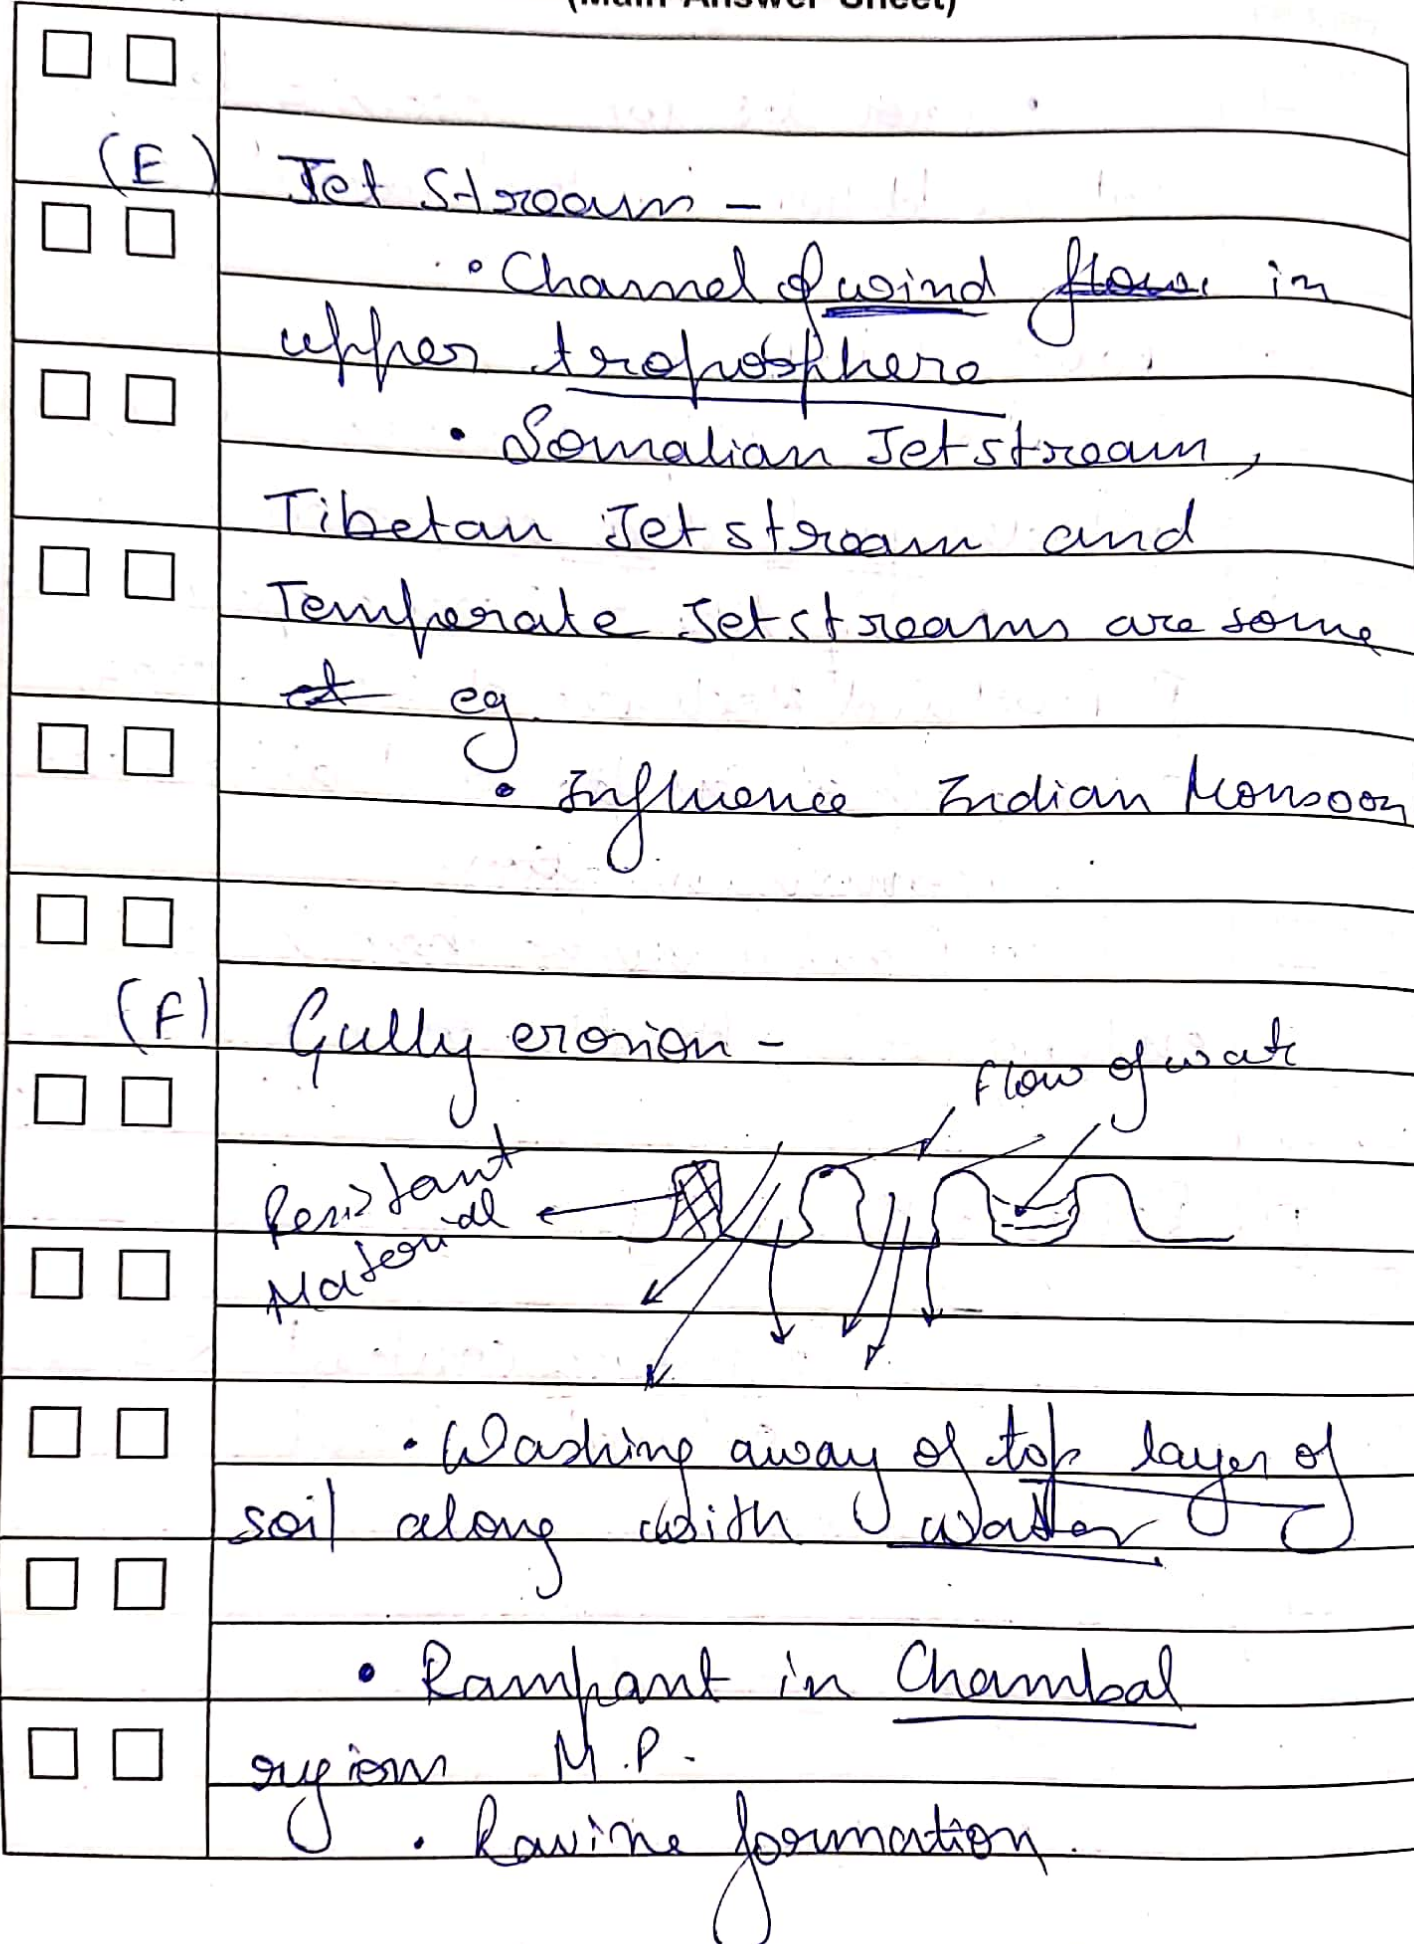 (Main Answer Sheet)
(E) Jet Stream -
• Channel of wind flow in
upper troposphere
• Somalian Jet stream,
Tibetan Jet stream and
Temperate Jet streams are some
eg
• Influence Indian Monsoon
(F) Gully erosion -
Flow of wate
Resistant
Material
• Washing away of top layer of
soil along with water
• Rampant in Chambal
region M.P.
• Ravine formation.